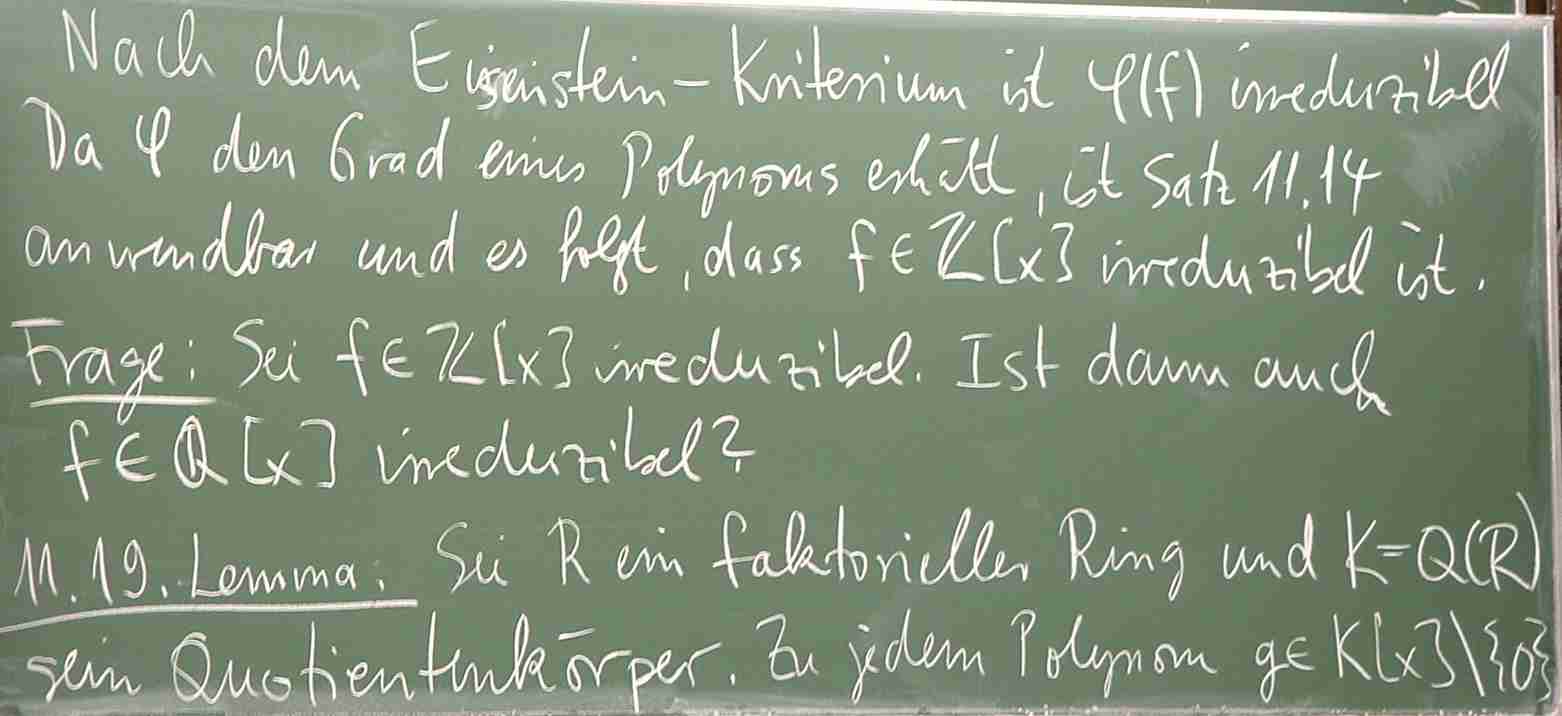 Nach dem Eisenstein-Kriterium ist φ(f) irreduzibel
Da φ den Grad eines Polynoms erhält, ist Satz 11.14
anwendbar und es folgt, dass f ∈ ℤ[x] irreduzibel ist.
Frage: Sei f ∈ ℤ[x] irreduzibel. Ist dann auch
f ∈ ℚ[x] irreduzibel?
11.19. Lemma: Sei R ein faktorieller Ring und K=Q(R)
sein Quotientenkörper. Zu jedem Polynom g ∈ K[x]\{0}